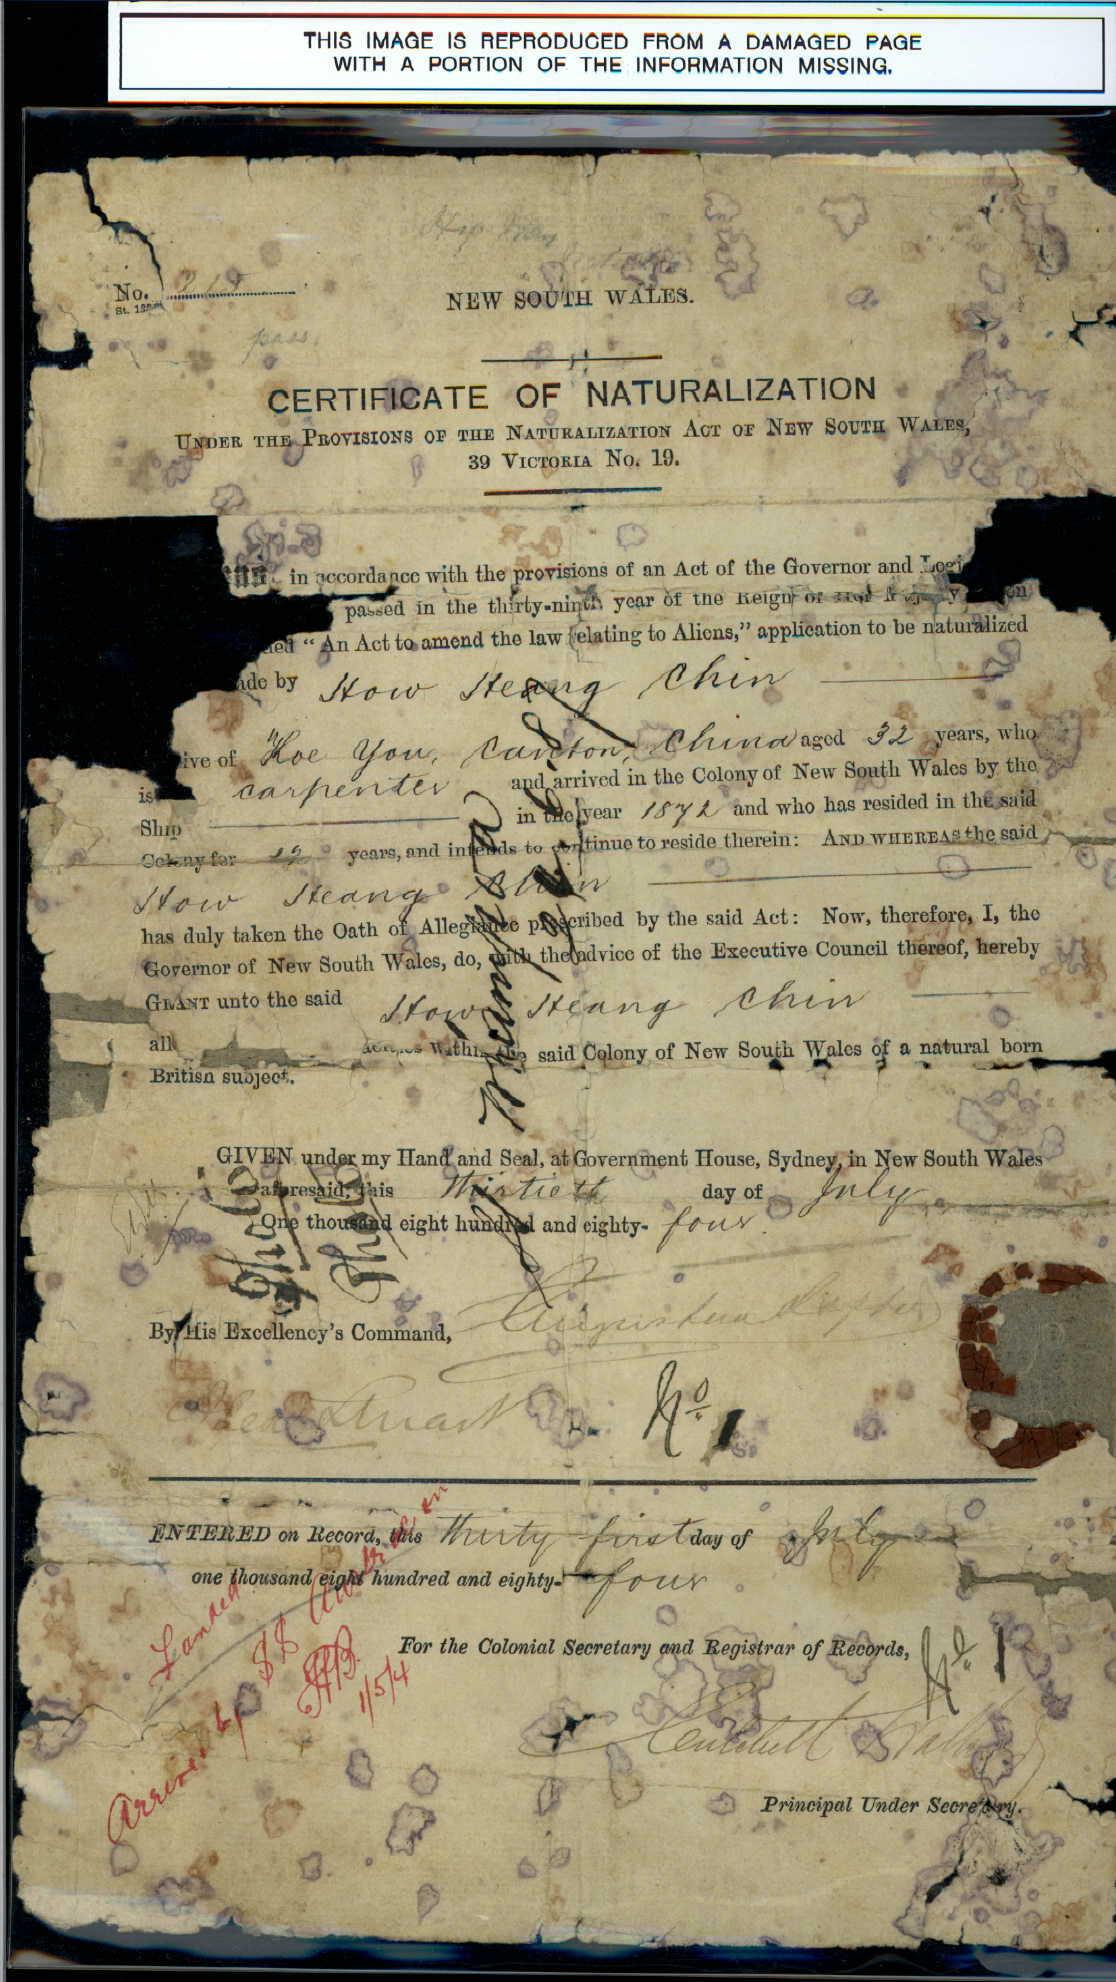 THIS IMAGE IS REPRODUCED FROM A DAMAGED PAGE
WITH A PORTION OF THE INFORMATION MISSING.
No.
NEW SOUTH WALES.
pass.
CERTIFICATE OF NATURALIZATION
UNDER THE PROVISIONS OF THE NATURALIZATION ACT OF NEW SOUTH WALES,
39 VICTORIA No. 19.
in accordance with the provisions of an Act of the Governor and Legi
passed in the thirty-ninth year of the Reign of Her
“An Act to amend the law relating to Aliens,” application to be naturalized
ade by How Heang Chin
ive of Koe You, Canton, China aged 32 years, who
is carpenter and arrived in the Colony of New South Wales by the
Ship in the year 1872 and who has resided in the said
Colony for 12 years, and intends to continue to reside therein: AND WHEREAS the said
How Heang Chin
has duly taken the Oath of Allegiance prescribed by the said Act: Now, therefore, I, the
Governor of New South Wales, do, with the advice of the Executive Council thereof, hereby
GRANT unto the said How Heang Chin
all within the said Colony of New South Wales of a natural born
British subject.
GIVEN under my Hand and Seal, at Government House, Sydney, in New South Wales
aforesaid, this thirtieth day of July
One thousand eight hundred and eighty- four.
Augustus Loftus
By His Excellency's Command,
Alex Stuart
No 1
ENTERED on Record, this thirty first day of July
one thousand eight hundred and eighty- four
For the Colonial Secretary and Registrar of Records,
No 1
Critchett Walker
Principal Under Secretary.
Landed
Arrived by SS
1/5/4